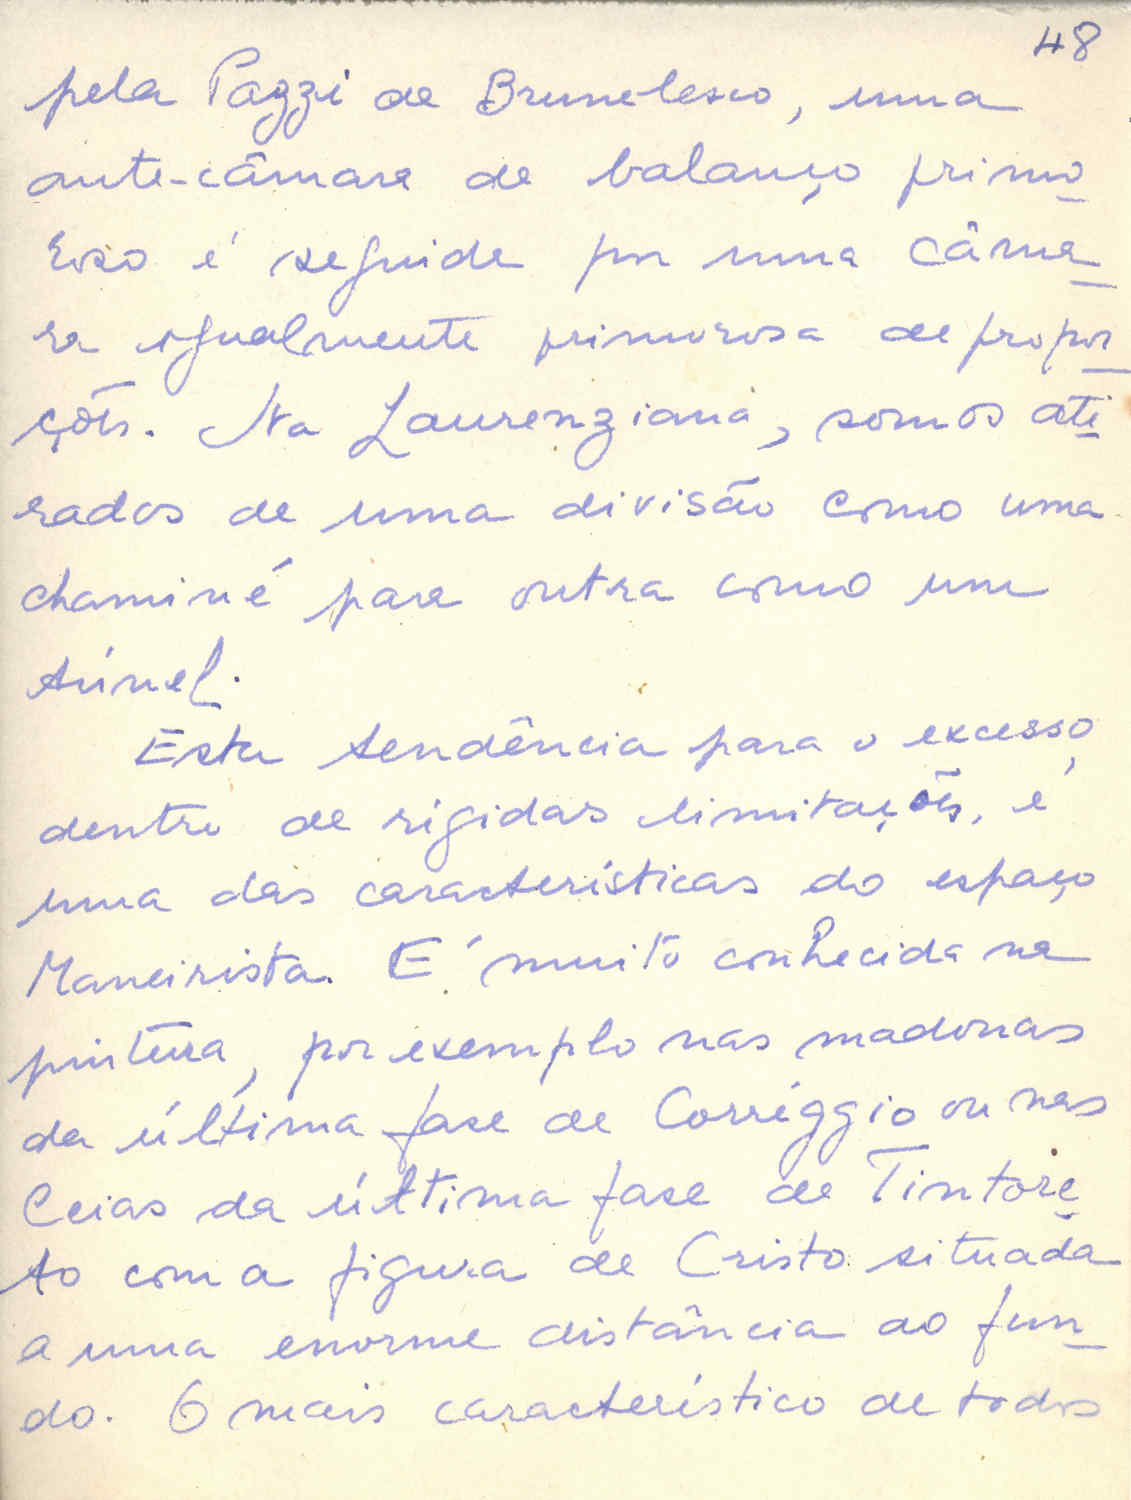 48
pela Pazzi de Brunelesco, uma
ante-câmara de balanço primo
roso é seguida por uma câma
ra igualmente primorosa de propor
ções. Na Laurenziana, somos ati
rados de uma divisão como uma
chaminé para outra como um
túnel.
Esta tendência para o excesso,
dentro de rígidas limitações, é
uma das características do espaço
Maneirista. É muito conhecida na
pintura, por exemplo nas madonas
da última fase de Corréggio ou nas
Ceias da última fase de Tintore
to com a figura de Cristo situada
a uma enorme distância ao fun
do. O mais característico de todos